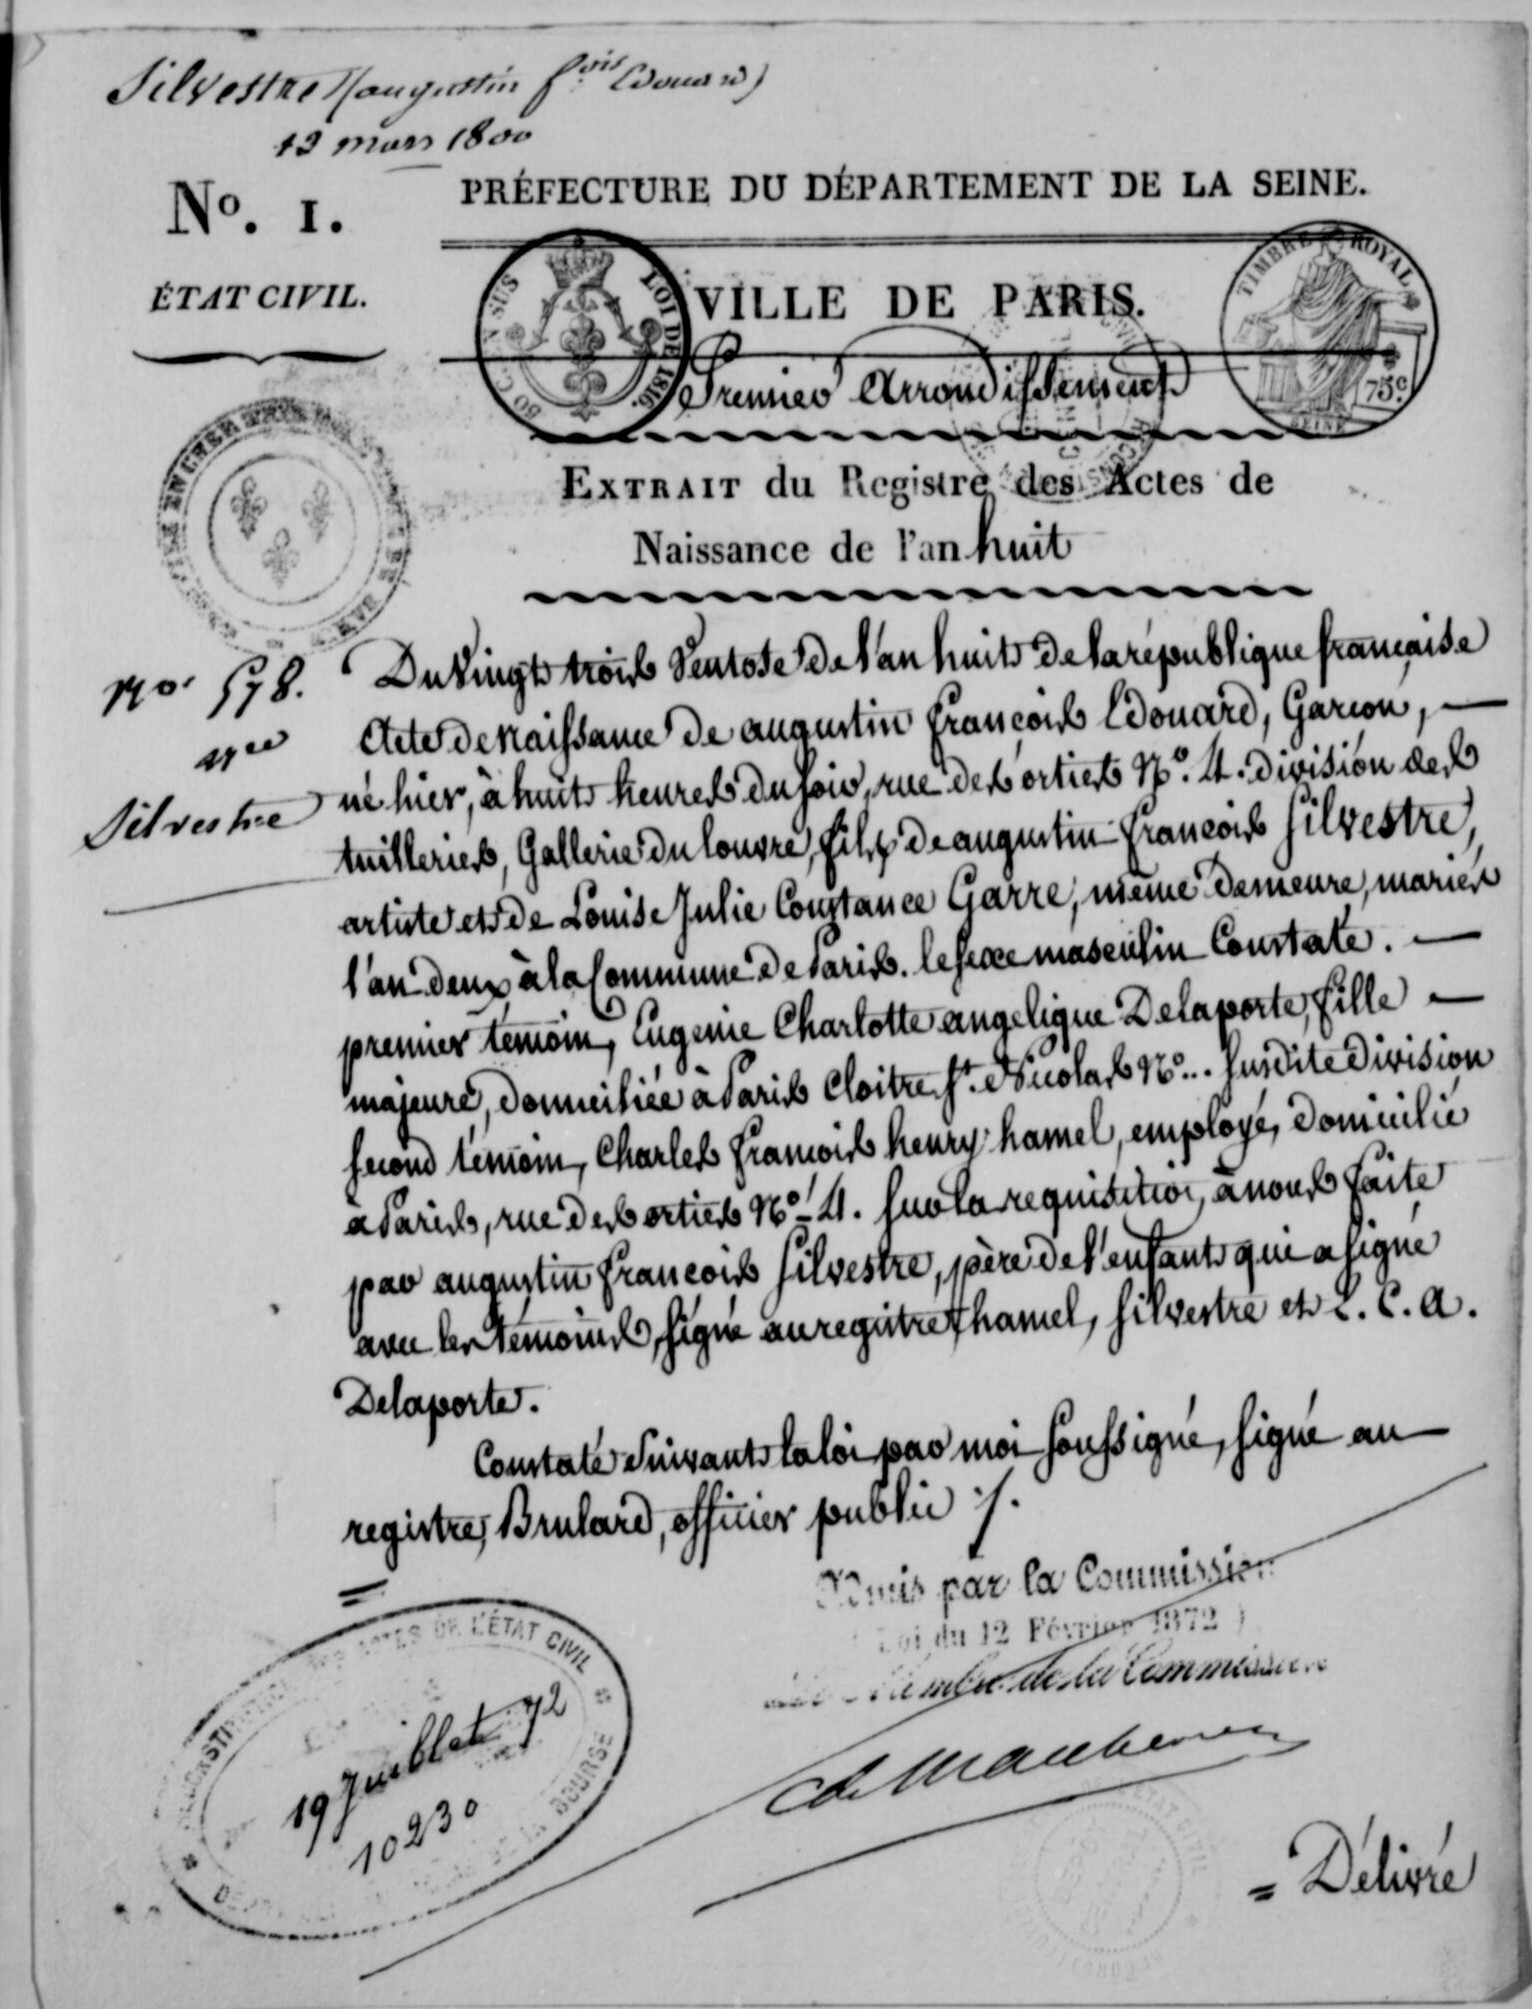 Silvestre (augustin f.ois Edouard)
13 mars 1800
No. 1.
PRÉFECTURE DU DÉPARTEMENT DE LA SEINE.
ÉTAT CIVIL.
VILLE DE PARIS.
LOI DE 1816.
TIMBRE ROYAL
75c.
SEINE
Premier Arrondissement
EXTRAIT du Registre des Actes de
Naissance de l'an huit
No. 578.
Nce
Silvestre
Du Vingt trois Ventose de l'an huit de la république française
Acte de Naissance de augustin françois Edouard, Garçon, —
né hier, à huit heures du soir, rue des orties No. 4. division des
tuilleries, Gallerie du louvre, fils de augustin françois Silvestre,
artiste et de Louise Julie Constance Garre, même demeure, mariés
l'an deux à la Commune de Paris. le sexe masculin Constaté. —
premier témoin, Eugenie Charlotte angelique Delaporte, fille —
majeure, domiciliée à Paris Cloitre St. Nicolas No... susdite Division
second témoin, Charles françois henry hamel, employé, domicilié
à Paris, rue des orties No. 4. sur la requisition à nous faite
par augustin françois Silvestre, père de l'enfant qui a signé
avec les témoins, signé au registre hamel, Silvestre et E. C. A.
Delaporte.
Constaté Suivant la loi par moi soussigné, signé au
registre, Brulard, officier public ./.
Admis par la Commission
(Loi du 12 Février 1872)
Le Membre de la Commission
DES ACTES DE L'ÉTAT CIVIL
19 Juillet 72
10230
DE LA BOURSE
= Délivré